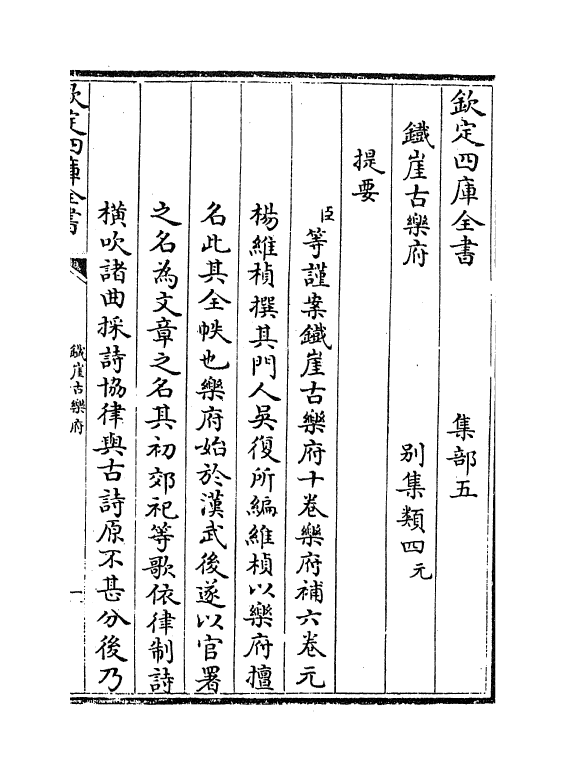 欽定四庫全書　集部五
鐵崖古樂府　別集類四元
提要
臣等謹案鐵崖古樂府十卷樂府補六卷元
楊維楨撰其門人吳復所編維楨以樂府擅
名此其全帙也樂府始於漢武後遂以官署
之名為文章之名其初郊祀等歌依律制詩
橫吹諸曲採詩協律與古詩原不甚分後乃
欽定四庫全書　鐵崖古樂府　一